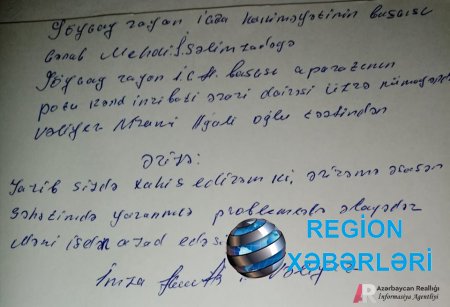 Göyçay rayon icra hakimiyətinin başçısı
cənab Mehdi Səlimzadəyə
Göyçay rayon i.c.H. başçısı aparatının
Potu kənd inzibati ərazi dairəsi üzrə nümayəndə
Vəliyev Ağali oğlu tərəfindən
Ərizə:
Yazib sizdə xahiş edirəm ki, ərizəmə əsasən
səhətimdə yaranmış problemlərlə əlaqədar
Məni işdən azad edəs
İmza
REGİON
XƏBƏRLƏRİ
Azərbaycan Reallığı
İnformasiya Agentliyi